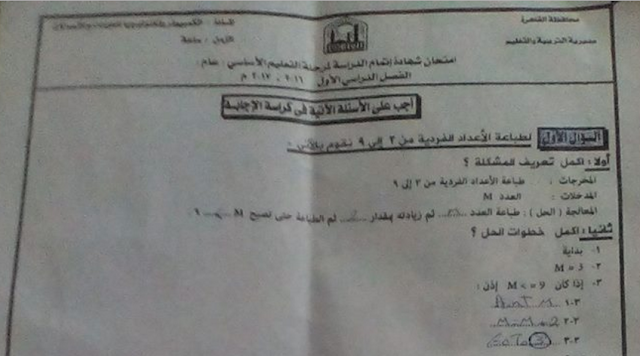 محافظة القاهرة
مديرية التربية والتعليم
المادة : الكمبيوتر وتكنولوجيا المعلومات والاتصالات
الزمن : ساعة
امتحان شهادة إتمام الدراسة لمرحلة التعليم الأساسي : عام :
الفصل الدراسي الأول ٢٠١٦ - ٢٠١٧ م
أجب على الأسئلة الآتية فى كراسة الإجابة
السؤال الأول لطباعة الأعداد الفردية من ٣ إلى ٩ نقوم بالآتى :
أولا : اكمل تعريف المشكلة ؟
المخرجات : طباعة الأعداد الفردية من ٣ إلى ٩
المدخلات : العدد M
المعالجة (الحل) : طباعة العدد ... ثم زيادته بمقدار ... ثم الطباعة حتى تصبح M ... ٩
ثانيا : اكمل خطوات الحل ؟
١- بداية
٢- M = 3
٣- إذا كان M < = 9 إذن :
١-٣ Print M
٢-٣ M=M+2
٣-٣ GoTo 3